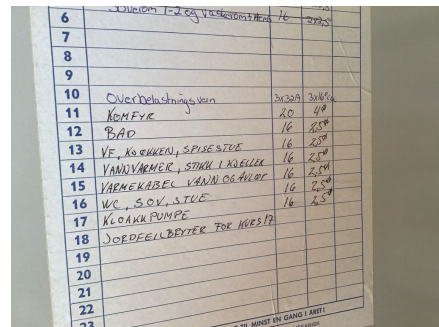 6 Soverom 1-2 og Vaskerom + Hems 16 2x2,5
7
8
9
10 Overbelastningsvern 3x32A
11 KOMFYR 20 4²
12 BAD 16 2,5²
13 VF, KJØKKEN, SPISESTUE 16 2,5²
14 VANNVARMER, STIKK I KJELLER 16 2,5²
15 VARMEKABEL VANN OG AVLØP 16 2,5²
16 WC, SOV, STUE 16 2,5²
17 KLOAKKPUMPE 16 2,5²
18 JORDFEILBRYTER FOR KURS 17
19
20
21
22
23 TIL MINST EN GANG I ÅRET!